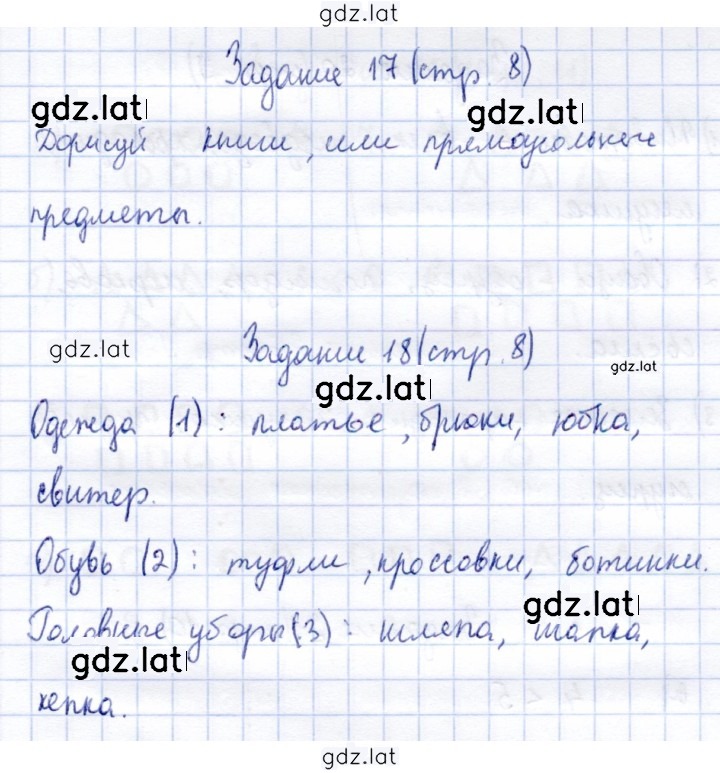 gdz.lat
Задание 17 (стр. 8)
gdz.lat
gdz.lat
Дорисуй книги, или прямоугольные
предметы.
gdz.lat
Задание 18 (стр. 8)
gdz.lat
gdz.lat
Одежда (1): платье, брюки, юбка,
свитер.
Обувь (2): туфли, кроссовки, ботинки.
gdz.lat
Головные уборы (3): шляпа, шапка,
gdz.lat
кепка.
gdz.lat